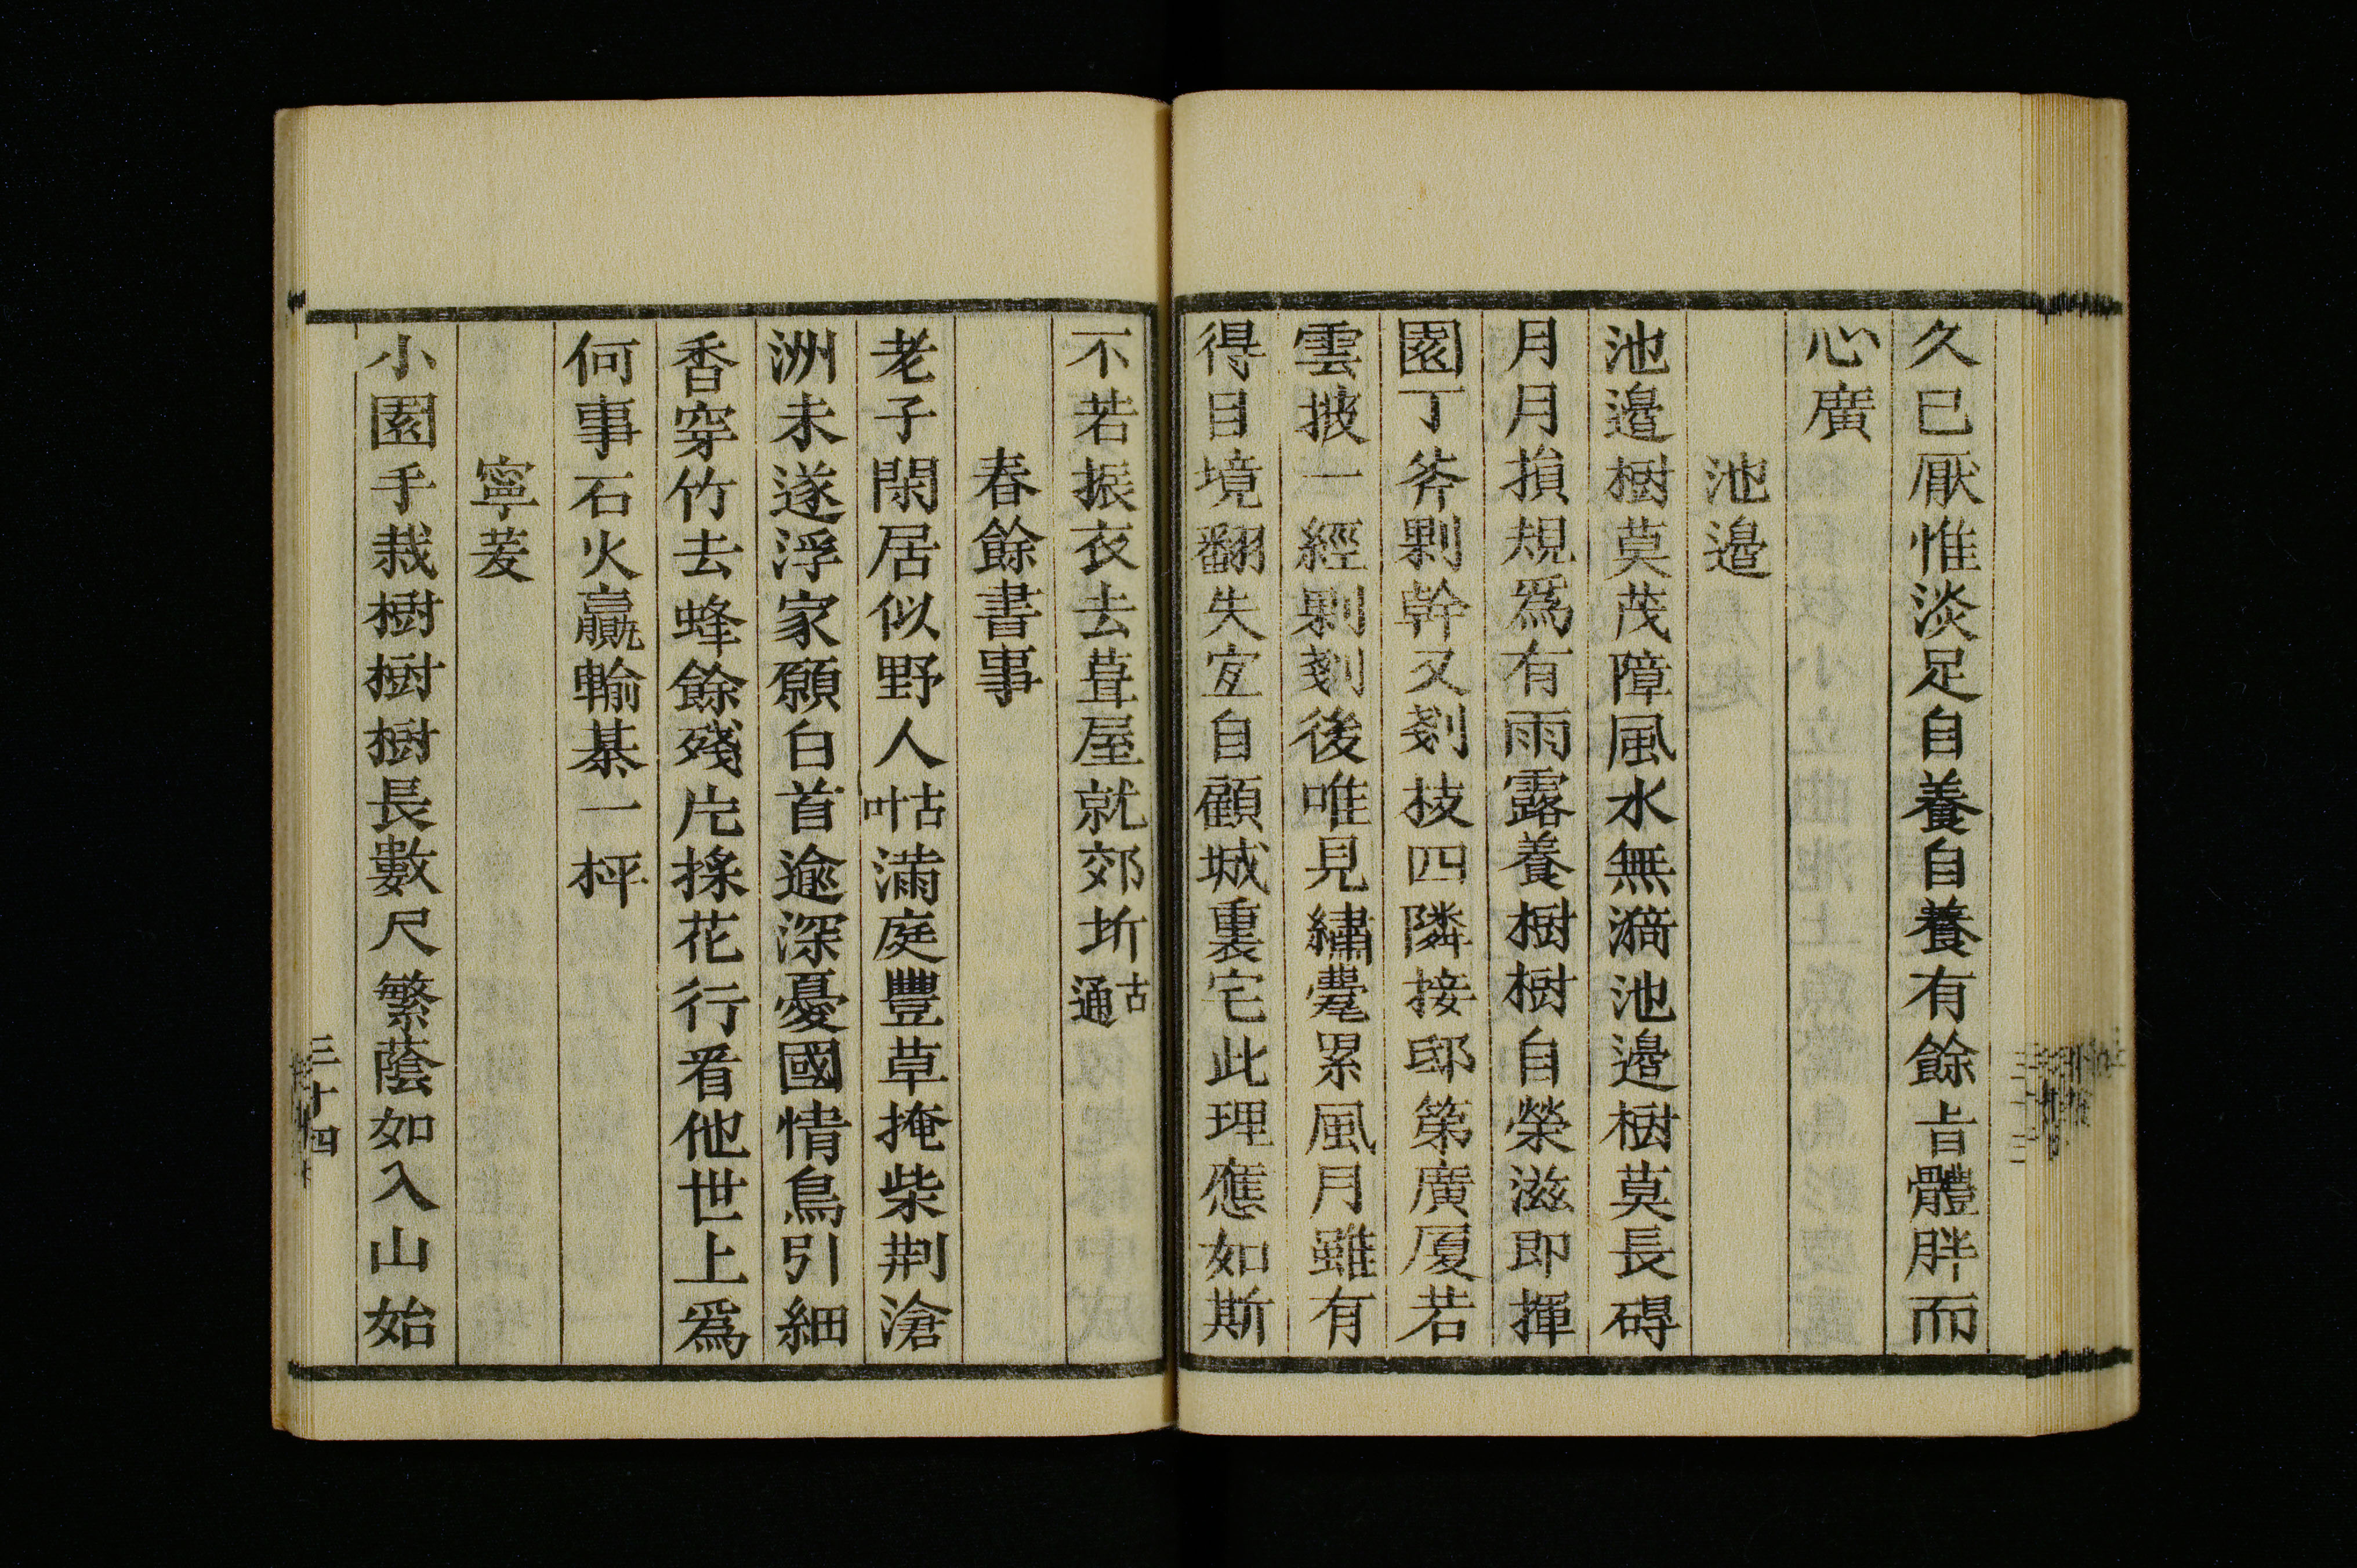 久已厭惟淡足自養自養有餘㫖體胖而
心廣
池邉
池邉樹莫茂障風水無漪池邉樹莫長碍
月月損規爲有雨露養樹樹自榮滋即揮
園丁斧剿幹又剗枝四隣接邸第廣厦若
雲披一經剿剗後唯見繡甍累風月雖有
得目境翻失宜自顧城裏宅此理應如斯
不若振衣去葺屋就郊圻古通
春餘書事
老子閑居似野人古叶滿庭豐草掩柴荆滄
洲未遂浮家願白首逾深憂國情鳥引細
香穿竹去蜂餘殘片揉花行看他世上爲
何事石火贏輸棊一枰
寧茇
小園手栽樹樹樹長數尺繁蔭如入山始
三十四